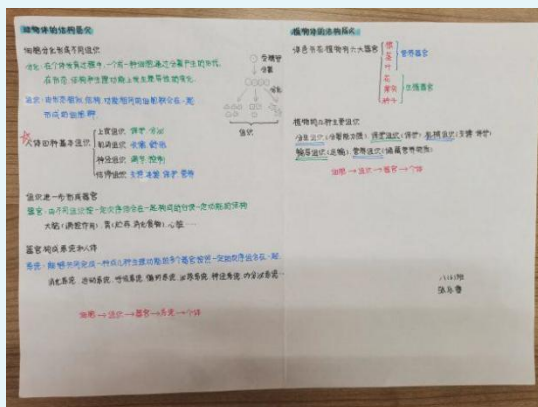 动物体的结构层次
细胞分化形成不同组织
分化：在个体发育过程中，一个或一种细胞通过分裂产生的后代，
在形态、结构和生理功能上发生差异性的变化。
受精卵
分裂
分化
组织
组织：由形态相似，结构、功能相同的细胞联合在一起
形成的细胞群
人体四种基本组织
上皮组织 保护 分泌
肌肉组织 收缩 舒张
神经组织 调节 控制
结缔组织 支持 连接 保护 营养
组织进一步形成器官
器官：由不同组织按一定次序结合在一起构成的行使一定功能的结构
大脑 胃 心脏……
器官构成系统和人体
系统：能够共同完成一种或几种生理功能的多个器官按照一定的次序组合在一起。
消化系统、运动系统、呼吸系统、循环系统、泌尿系统、神经系统、内分泌系统…
细胞→组织→器官→系统→个体
植物体的结构层次
绿色开花植物有六大器官
根
茎
叶
营养器官
花
果实
种子
生殖器官
植物的几种主要组织
分生组织（分裂能力强）保护组织（保护）机械组织（支撑 保护）
输导组织（运输）营养组织（储藏营养物质）
细胞→组织→器官→个体